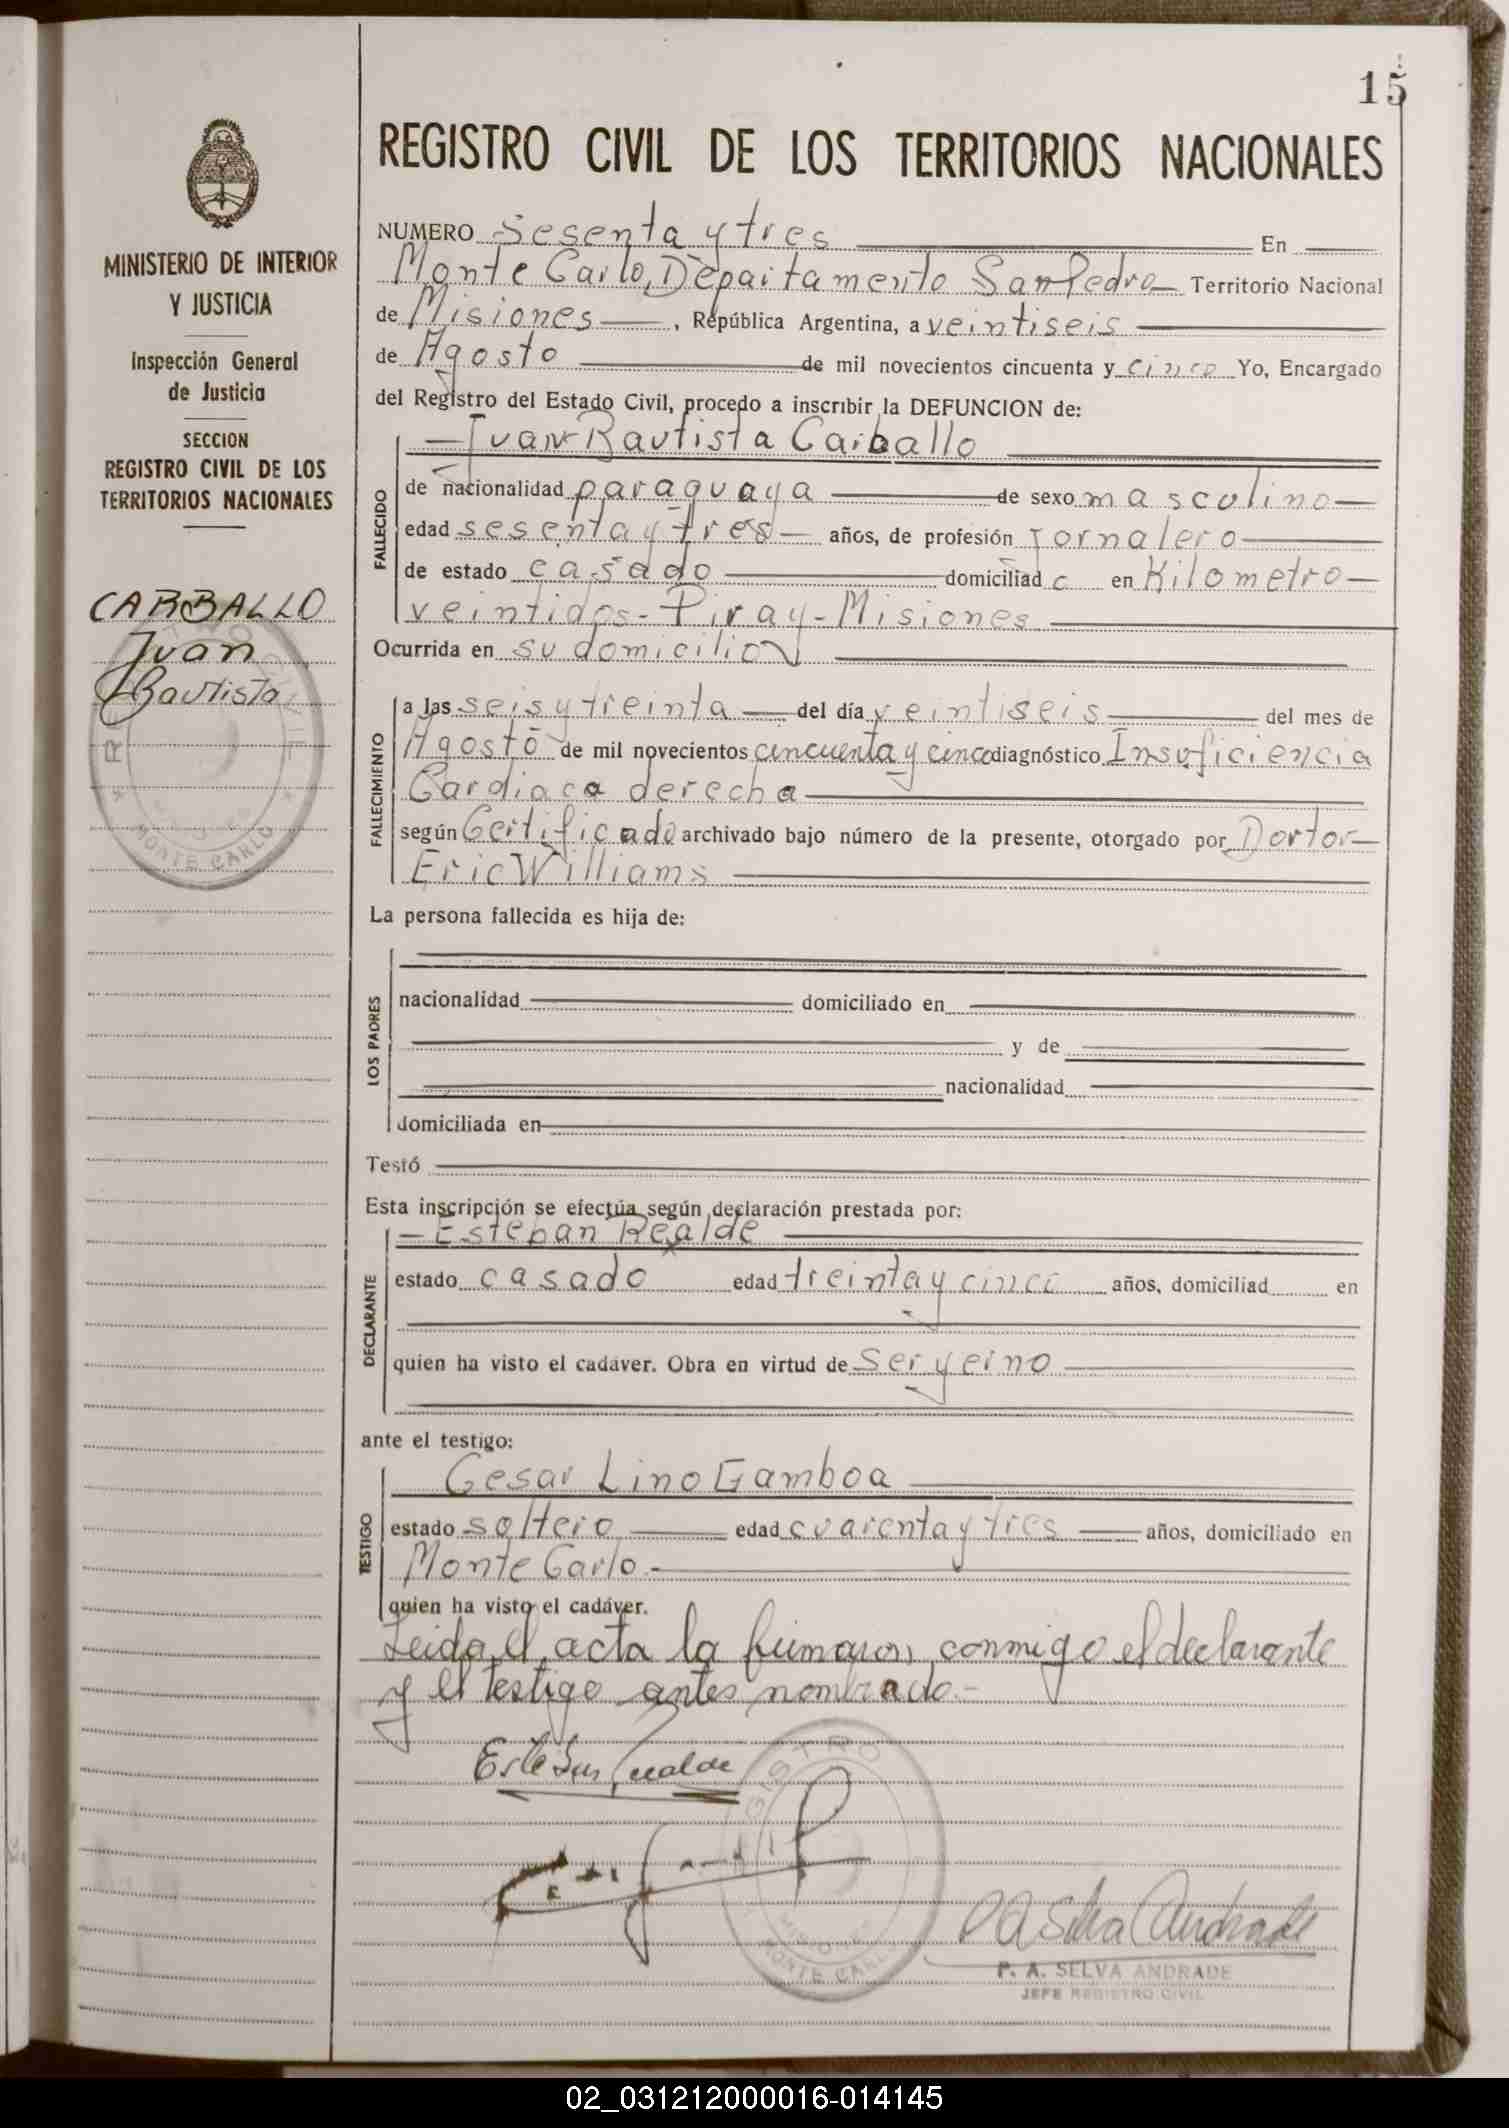 15
REGISTRO CIVIL DE LOS TERRITORIOS NACIONALES
MINISTERIO DE INTERIOR
Y JUSTICIA
Inspección General
de Justicia
SECCION
REGISTRO CIVIL DE LOS
TERRITORIOS NACIONALES
CARBALLO
Juan
Bautista
REGISTRO CIVIL
MONTE CARLO
NUMERO Sesenta y tres En
Monte Carlo, Departamento San Pedro Territorio Nacional
de Misiones, República Argentina, a veintiseis
de Agosto de mil novecientos cincuenta y cinco Yo, Encargado
del Registro del Estado Civil, procedo a inscribir la DEFUNCION de:
Juan Bautista Carballo
FALLECIDO
de nacionalidad paraguaya de sexo masculino
edad sesenta y tres años, de profesión Jornalero
de estado casado domiciliad o en Kilometro
veintidos - Piray - Misiones
Ocurrida en su domicilio
FALLECIMIENTO
a las seis y treinta del día veintiseis del mes de
Agosto de mil novecientos cincuenta y cinco diagnóstico Insuficiencia
Cardiaca derecha
según Certificado archivado bajo número de la presente, otorgado por Dortor
Eric Williams
La persona fallecida es hija de:
LOS PADRES
nacionalidad domiciliado en
y de
nacionalidad
domiciliada en
Testó
Esta inscripción se efectúa según declaración prestada por:
Esteban Realde
DECLARANTE
estado casado edad treinta y cinco años, domiciliad en
quien ha visto el cadáver. Obra en virtud de ser yerno
ante el testigo:
Cesar Lino Gamboa
TESTIGO
estado soltero edad cuarenta y tres años, domiciliado en
Monte Carlo.
quien ha visto el cadáver.
Leida el acta la firmaron conmigo el declarante
y el testigo antes nombrado.-
REGISTRO
MISIONES
MONTE CARLO
P. A. Selva Andrade
P. A. SELVA ANDRADE
JEFE REGISTRO CIVIL
02_031212000016-014145